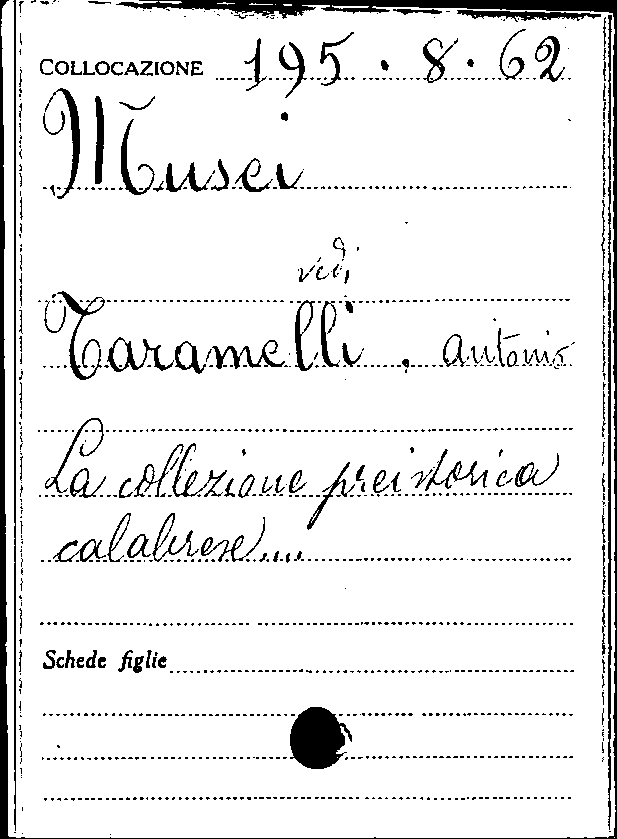 COLLOCAZIONE 195 . 8 . 62
Musei
vedi
Taramelli . Antonio
La collezione preistorica
calabrese....
Schede figlie